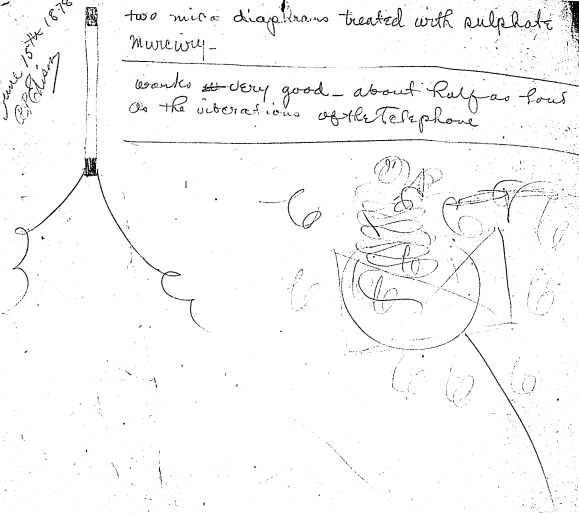 June 15th 1878
two mica diaphrams treated with sulphate
Mercury -
works very good - about half as loud
as the viberations of the Telephone
6
6
6
6
6
6
6
6